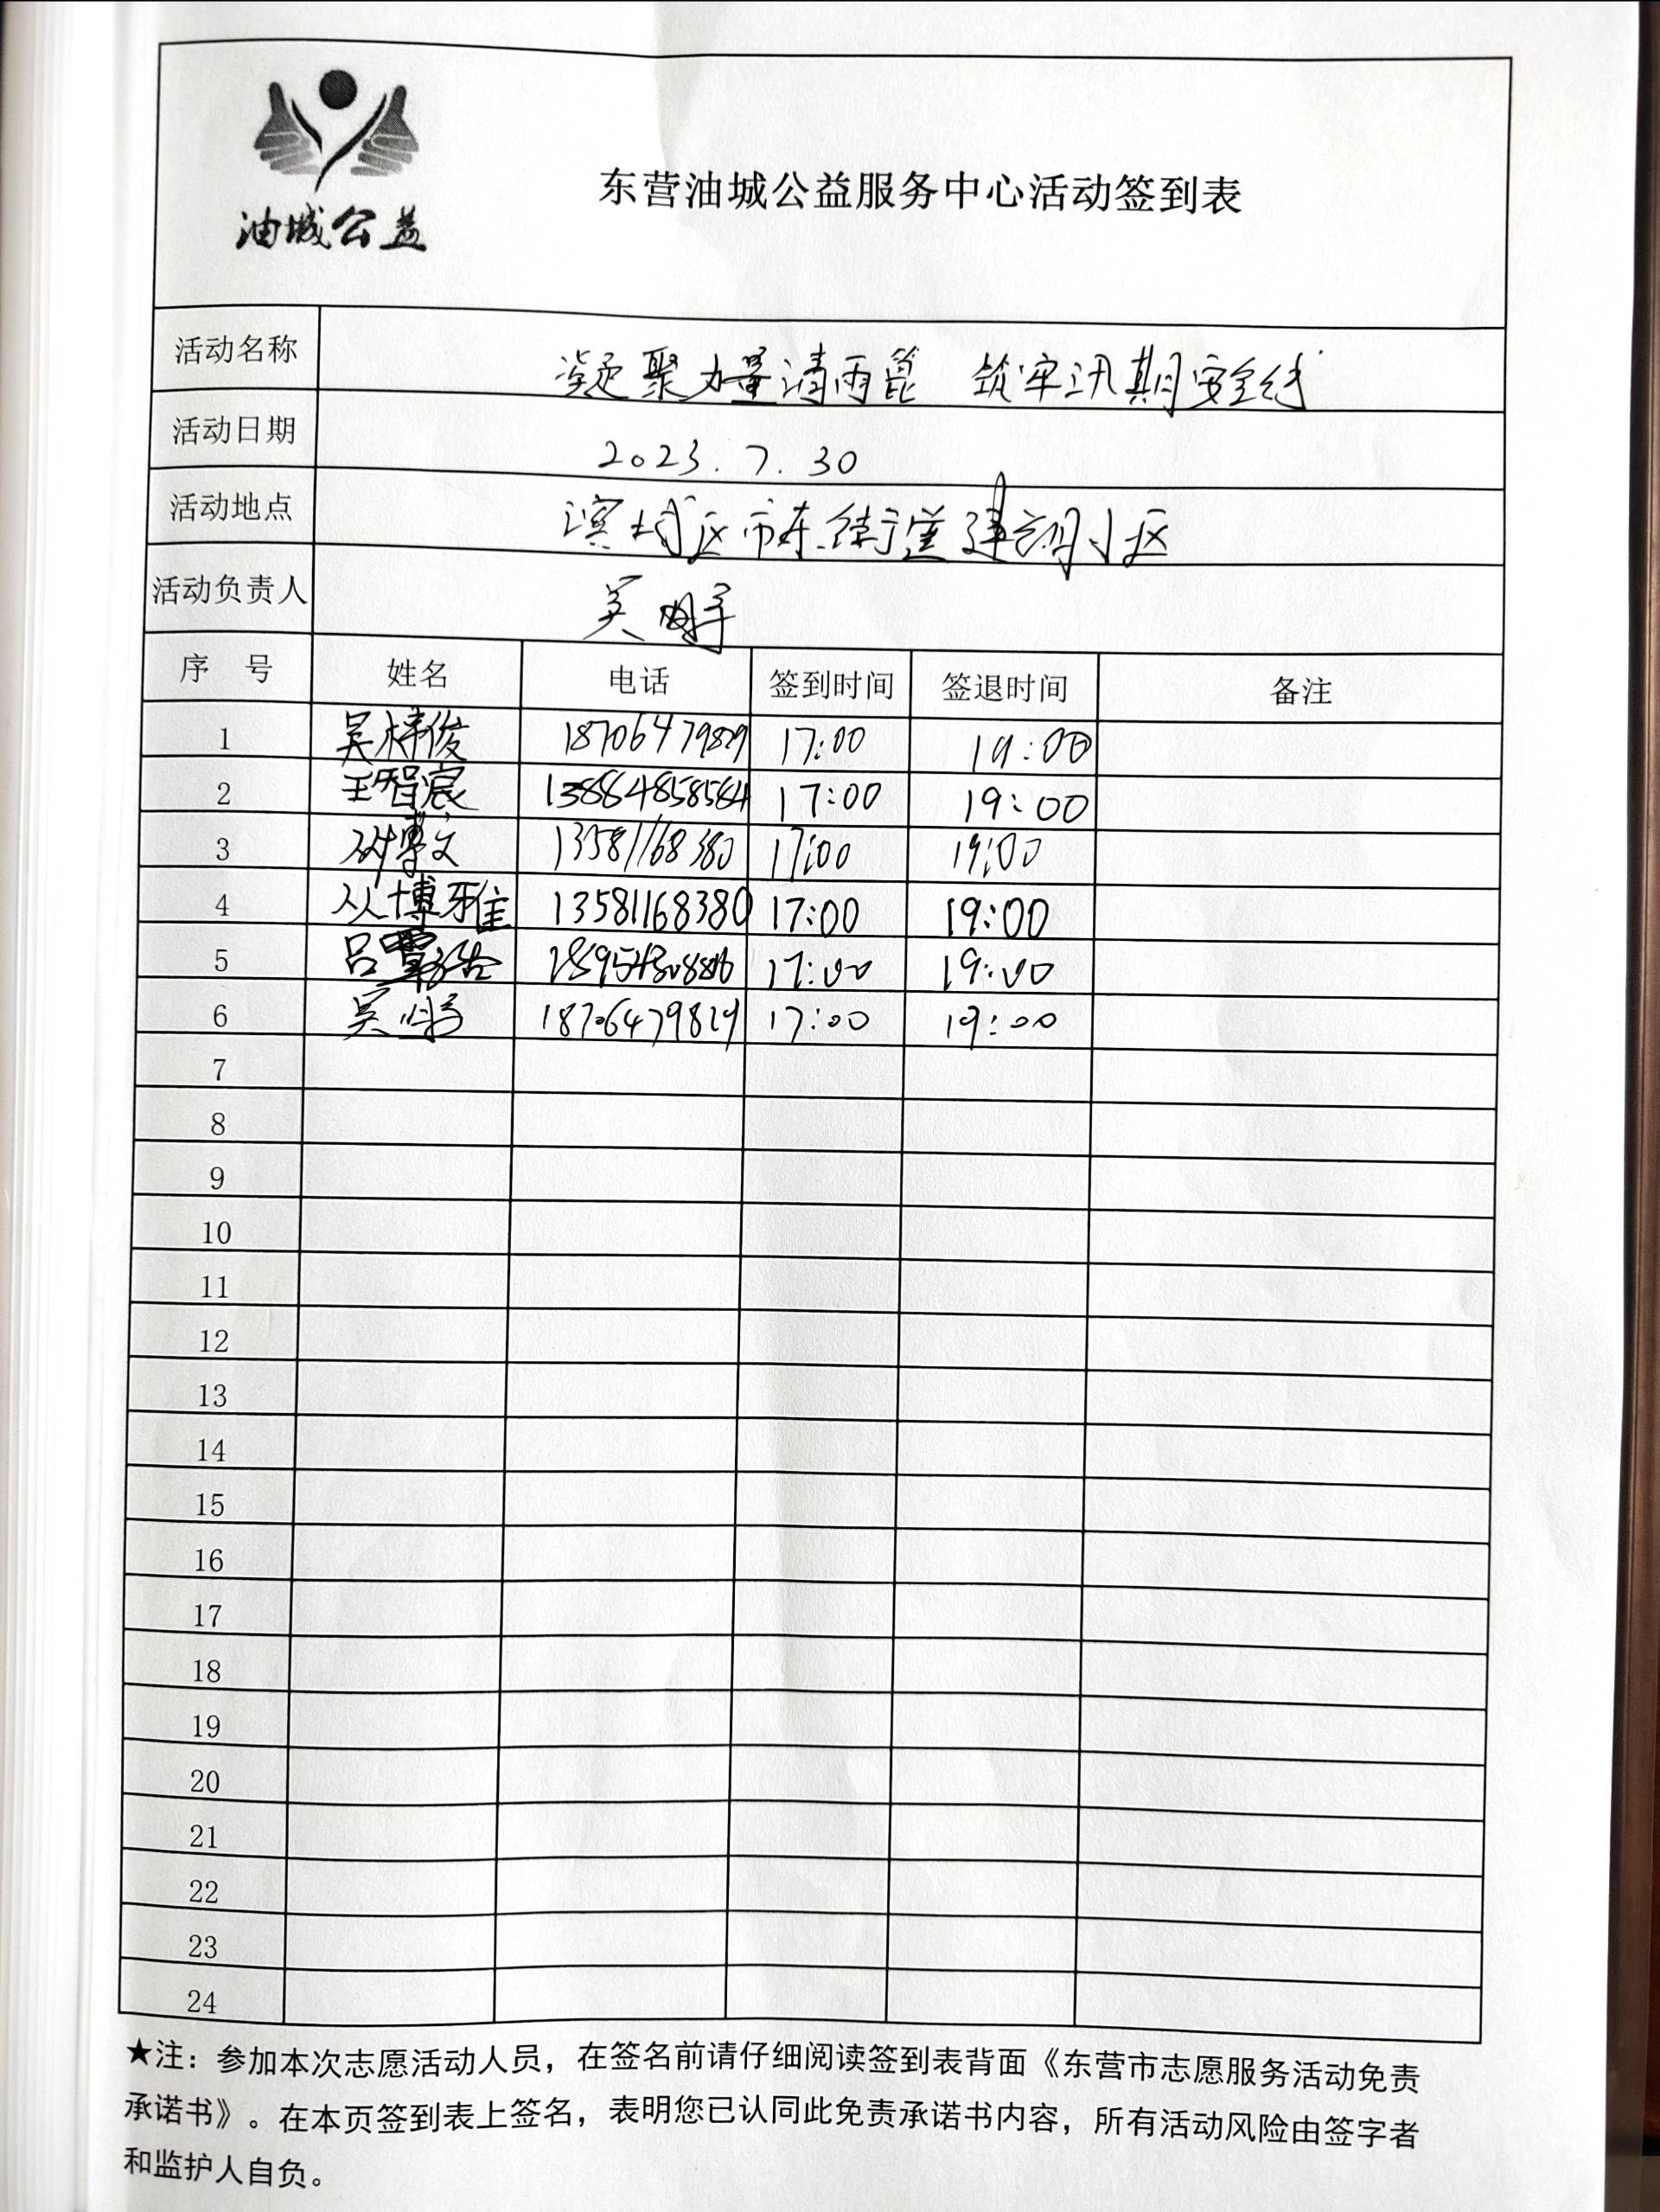 油城公益
东营油城公益服务中心活动签到表
活动名称 凝聚力量清雨篦 筑牢汛期安全线
活动日期 2023.7.30
活动地点 滨城区市东街道建设小区
活动负责人 吴
序 号 姓名 电话 签到时间 签退时间 备注
1 吴梓俊 18706479829 17:00 19:00
2 王智宸 13884858584 17:00 19:00
3 博文 13581168380 17:00 19:00
4 从博雅 13581168380 17:00 19:00
5 吕 17:00 19:00
6 吴 18706479829 17:00 19:00
7
8
9
10
11
12
13
14
15
16
17
18
19
20
21
22
23
24
★注：参加本次志愿活动人员，在签名前请仔细阅读签到表背面《东营市志愿服务活动免责
承诺书》。在本页签到表上签名，表明您已认同此免责承诺书内容，所有活动风险由签字者
和监护人自负。